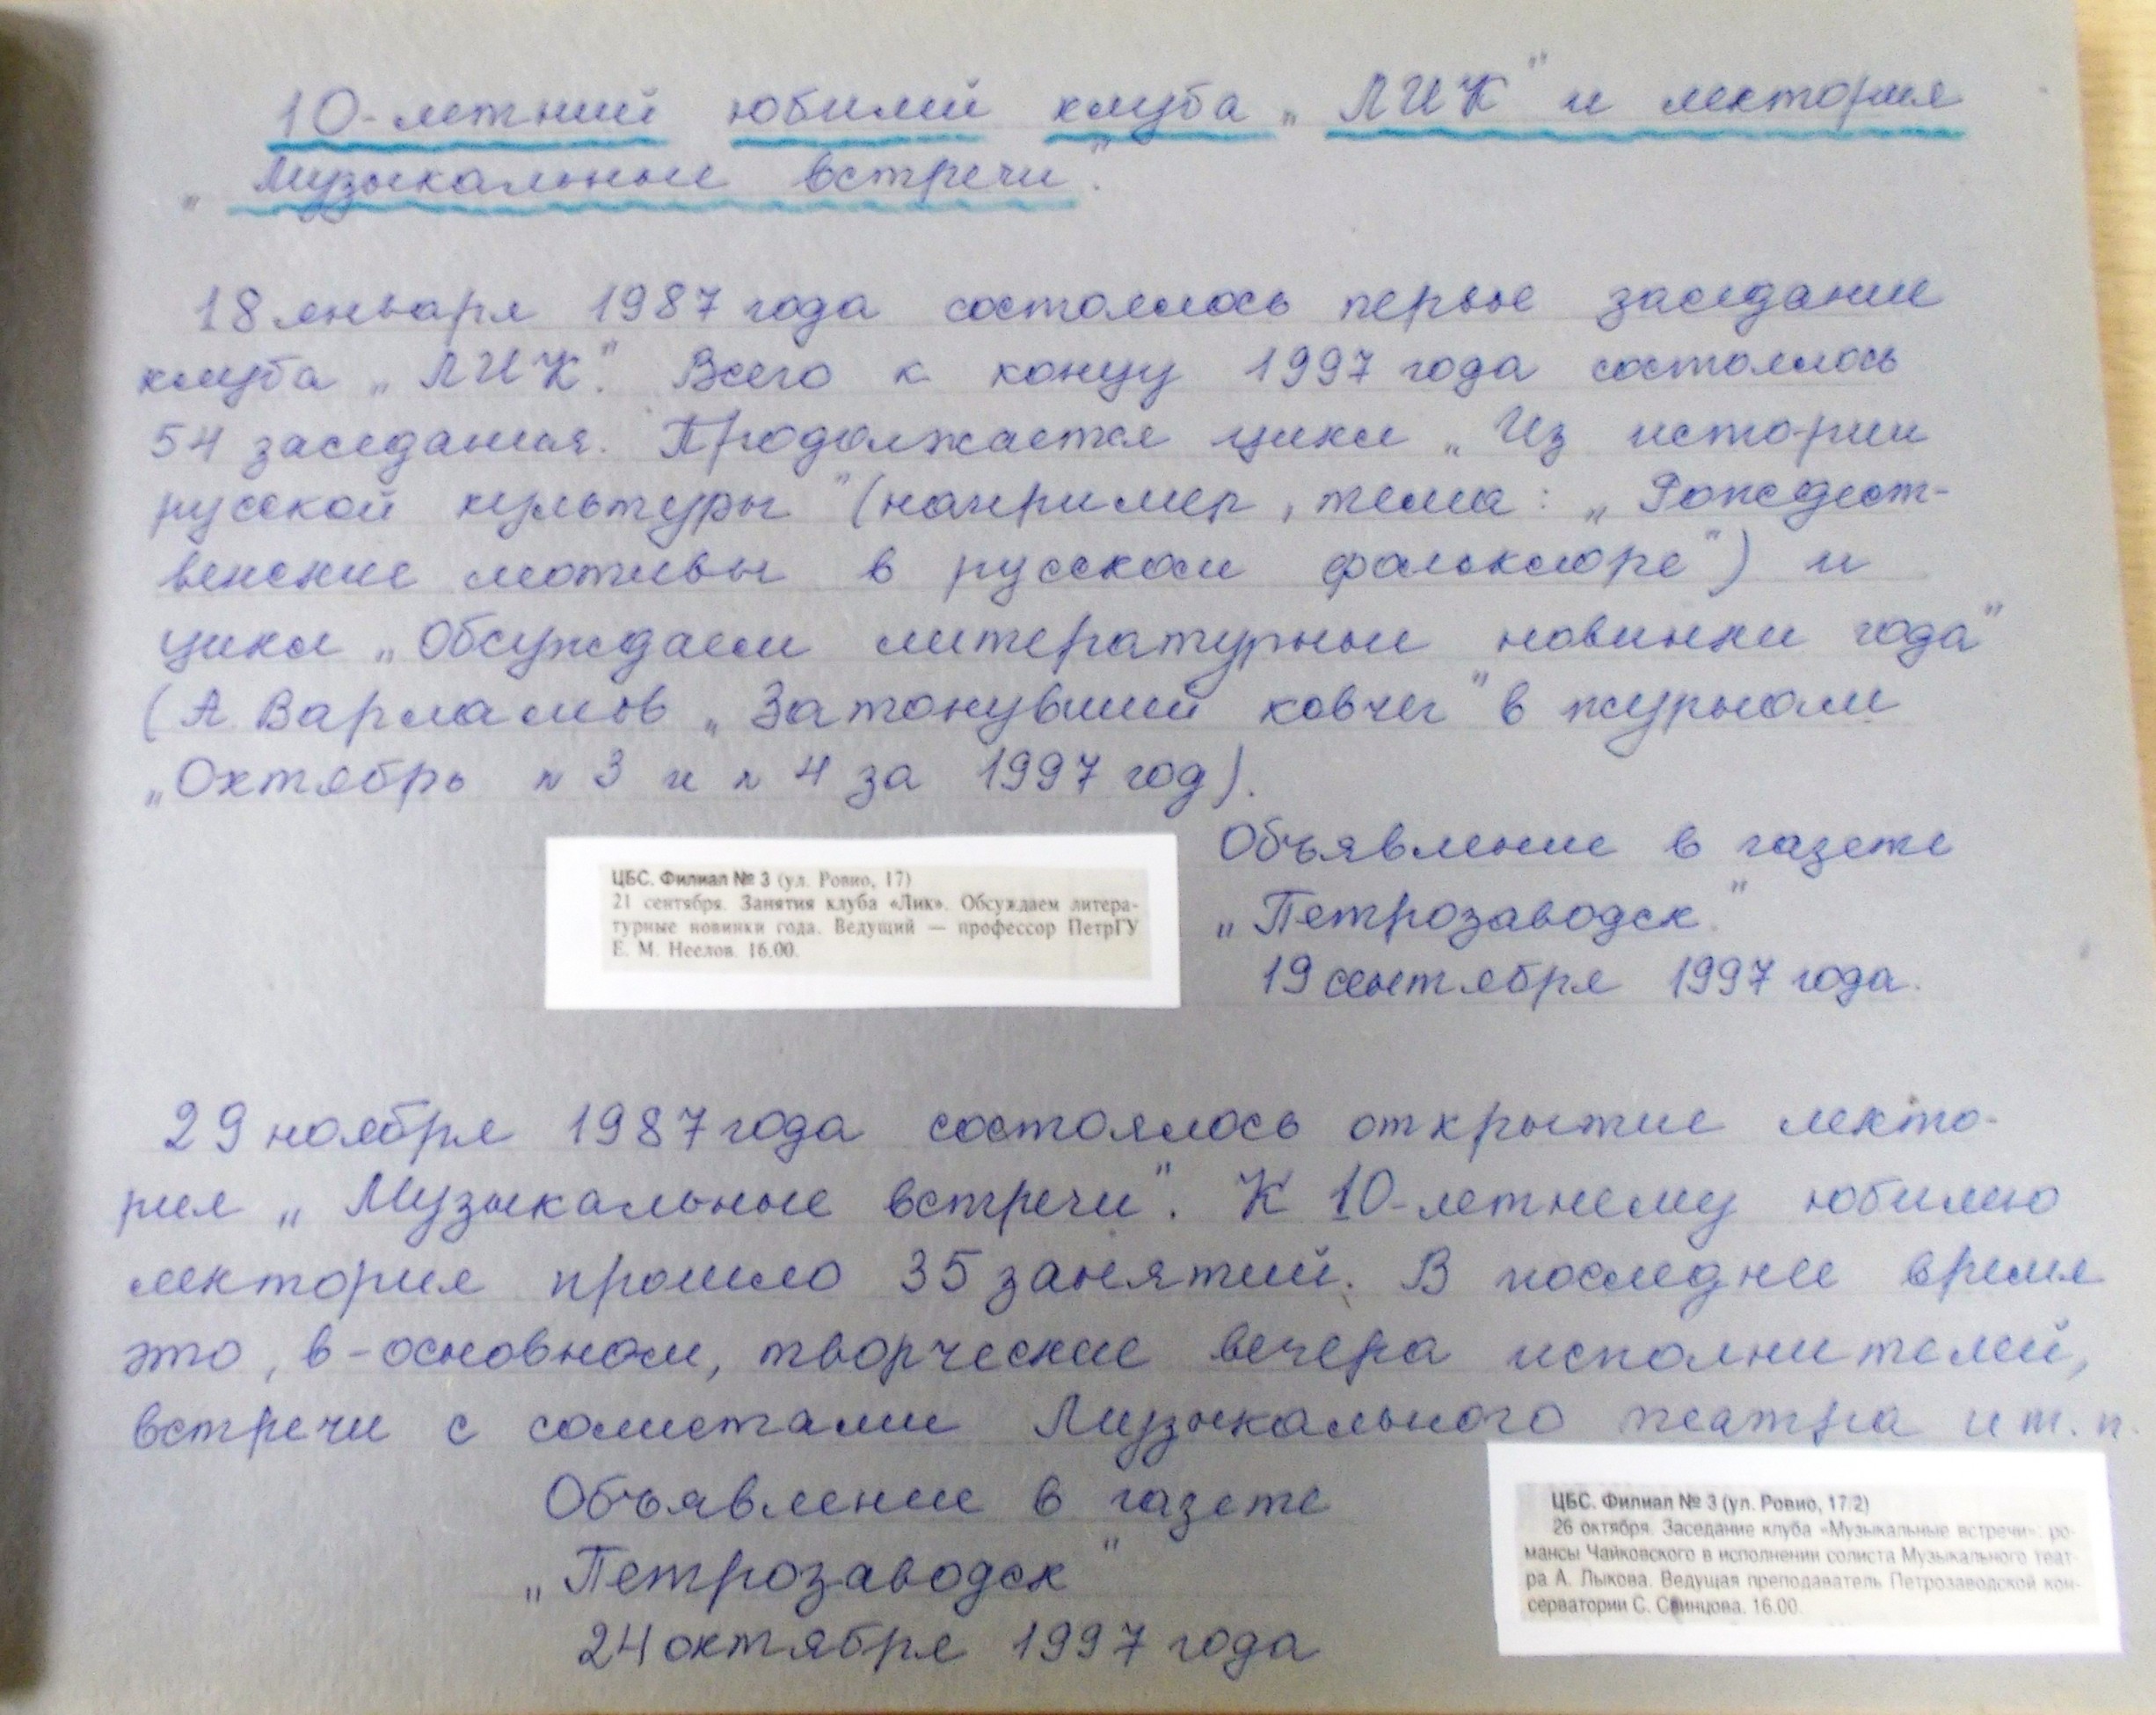 10-летний юбилей клуба „ЛИК" и лектория
„Музыкальные встречи".
18 января 1987 года состоялось первое заседание
клуба „ЛИК". Всего к концу 1997 года состоялось
54 заседания. Продолжается цикл „Из истории
русской культуры" (например, тема: „Рождест-
венские мотивы в русском фольклоре") и
цикл „Обсуждаем литературные новинки года"
(А. Варламов „Затонувший ковчег" в журнале
„Октябрь n 3 и n 4 за 1997 год).
ЦБС. Филиал № 3 (ул. Ровио, 17)
21 сентября. Занятия клуба «Лик». Обсуждаем литера-
турные новинки года. Ведущий — профессор ПетрГУ
Е. М. Неелов. 16.00.
Объявление в газете
„Петрозаводск."
19 сентября 1997 года.
29 ноября 1987 года состоялось открытие лекто-
рия „Музыкальные встречи". К 10-летнему юбилею
лектория прошло 35 занятий. В последнее время
это, в-основном, творческие вечера исполнителей,
встречи с солистами Музыкального театра и т. п.
Объявление в газете
„Петрозаводск"
24 октября 1997 года
ЦБС. Филиал № 3 (ул. Ровио, 17/2)
26 октября. Заседание клуба «Музыкальные встречи»: ро-
мансы Чайковского в исполнении солиста Музыкального теат-
ра А. Лыкова. Ведущая преподаватель Петрозаводской кон-
серватории С. Свинцова. 16.00.